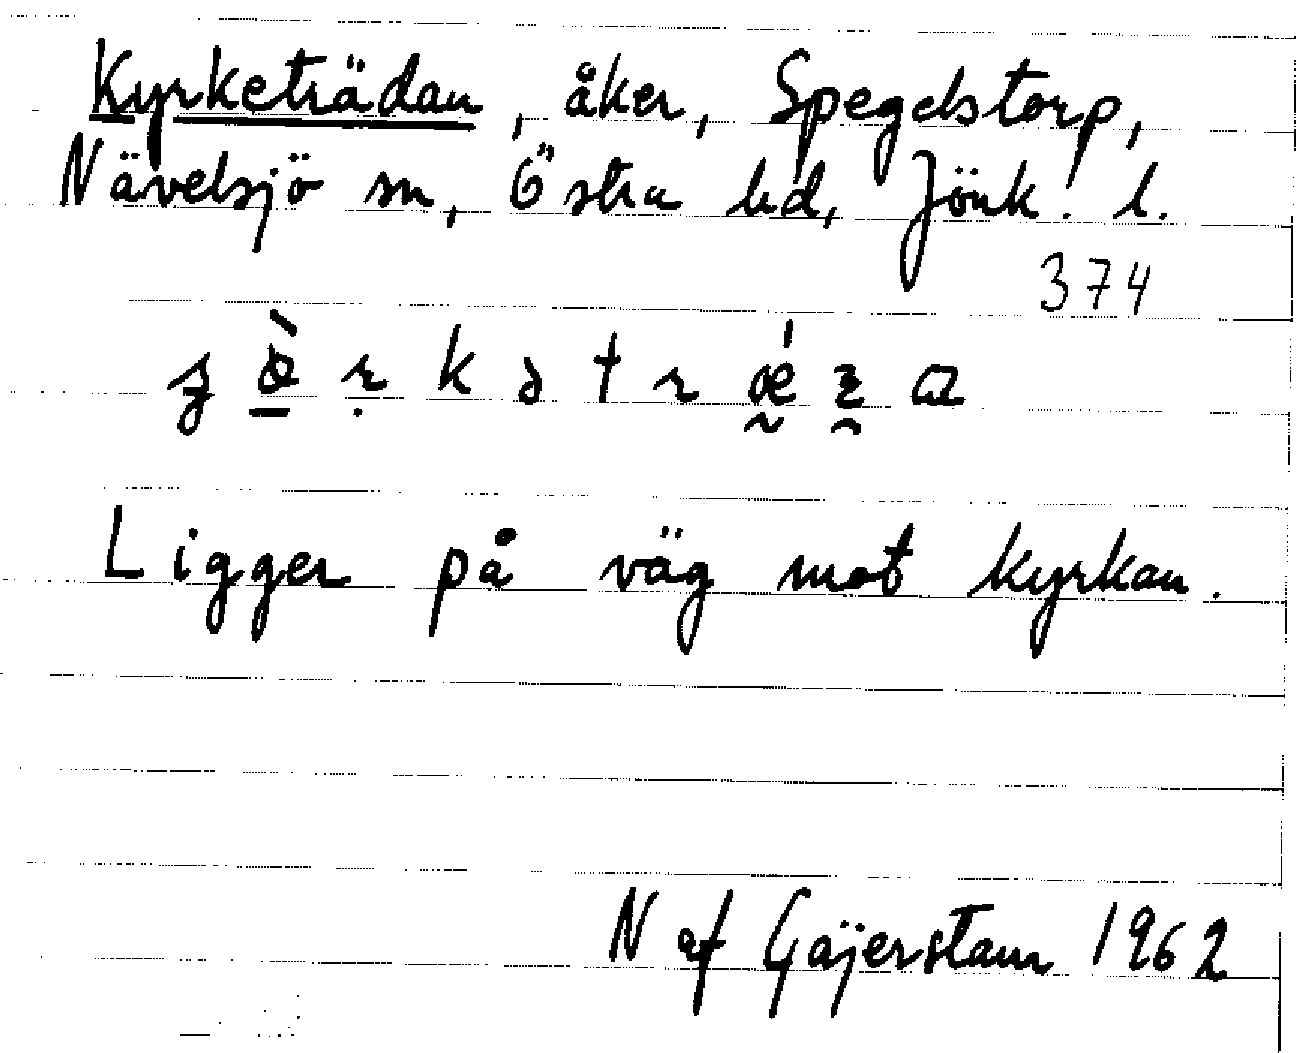 Kyrketrädan, åker, Spegelstorp,
Nävelsjö sn, Östra hd, Jönk. l.
374
Ligger på väg mot kyrkan.
N af Gäjerstam 1962